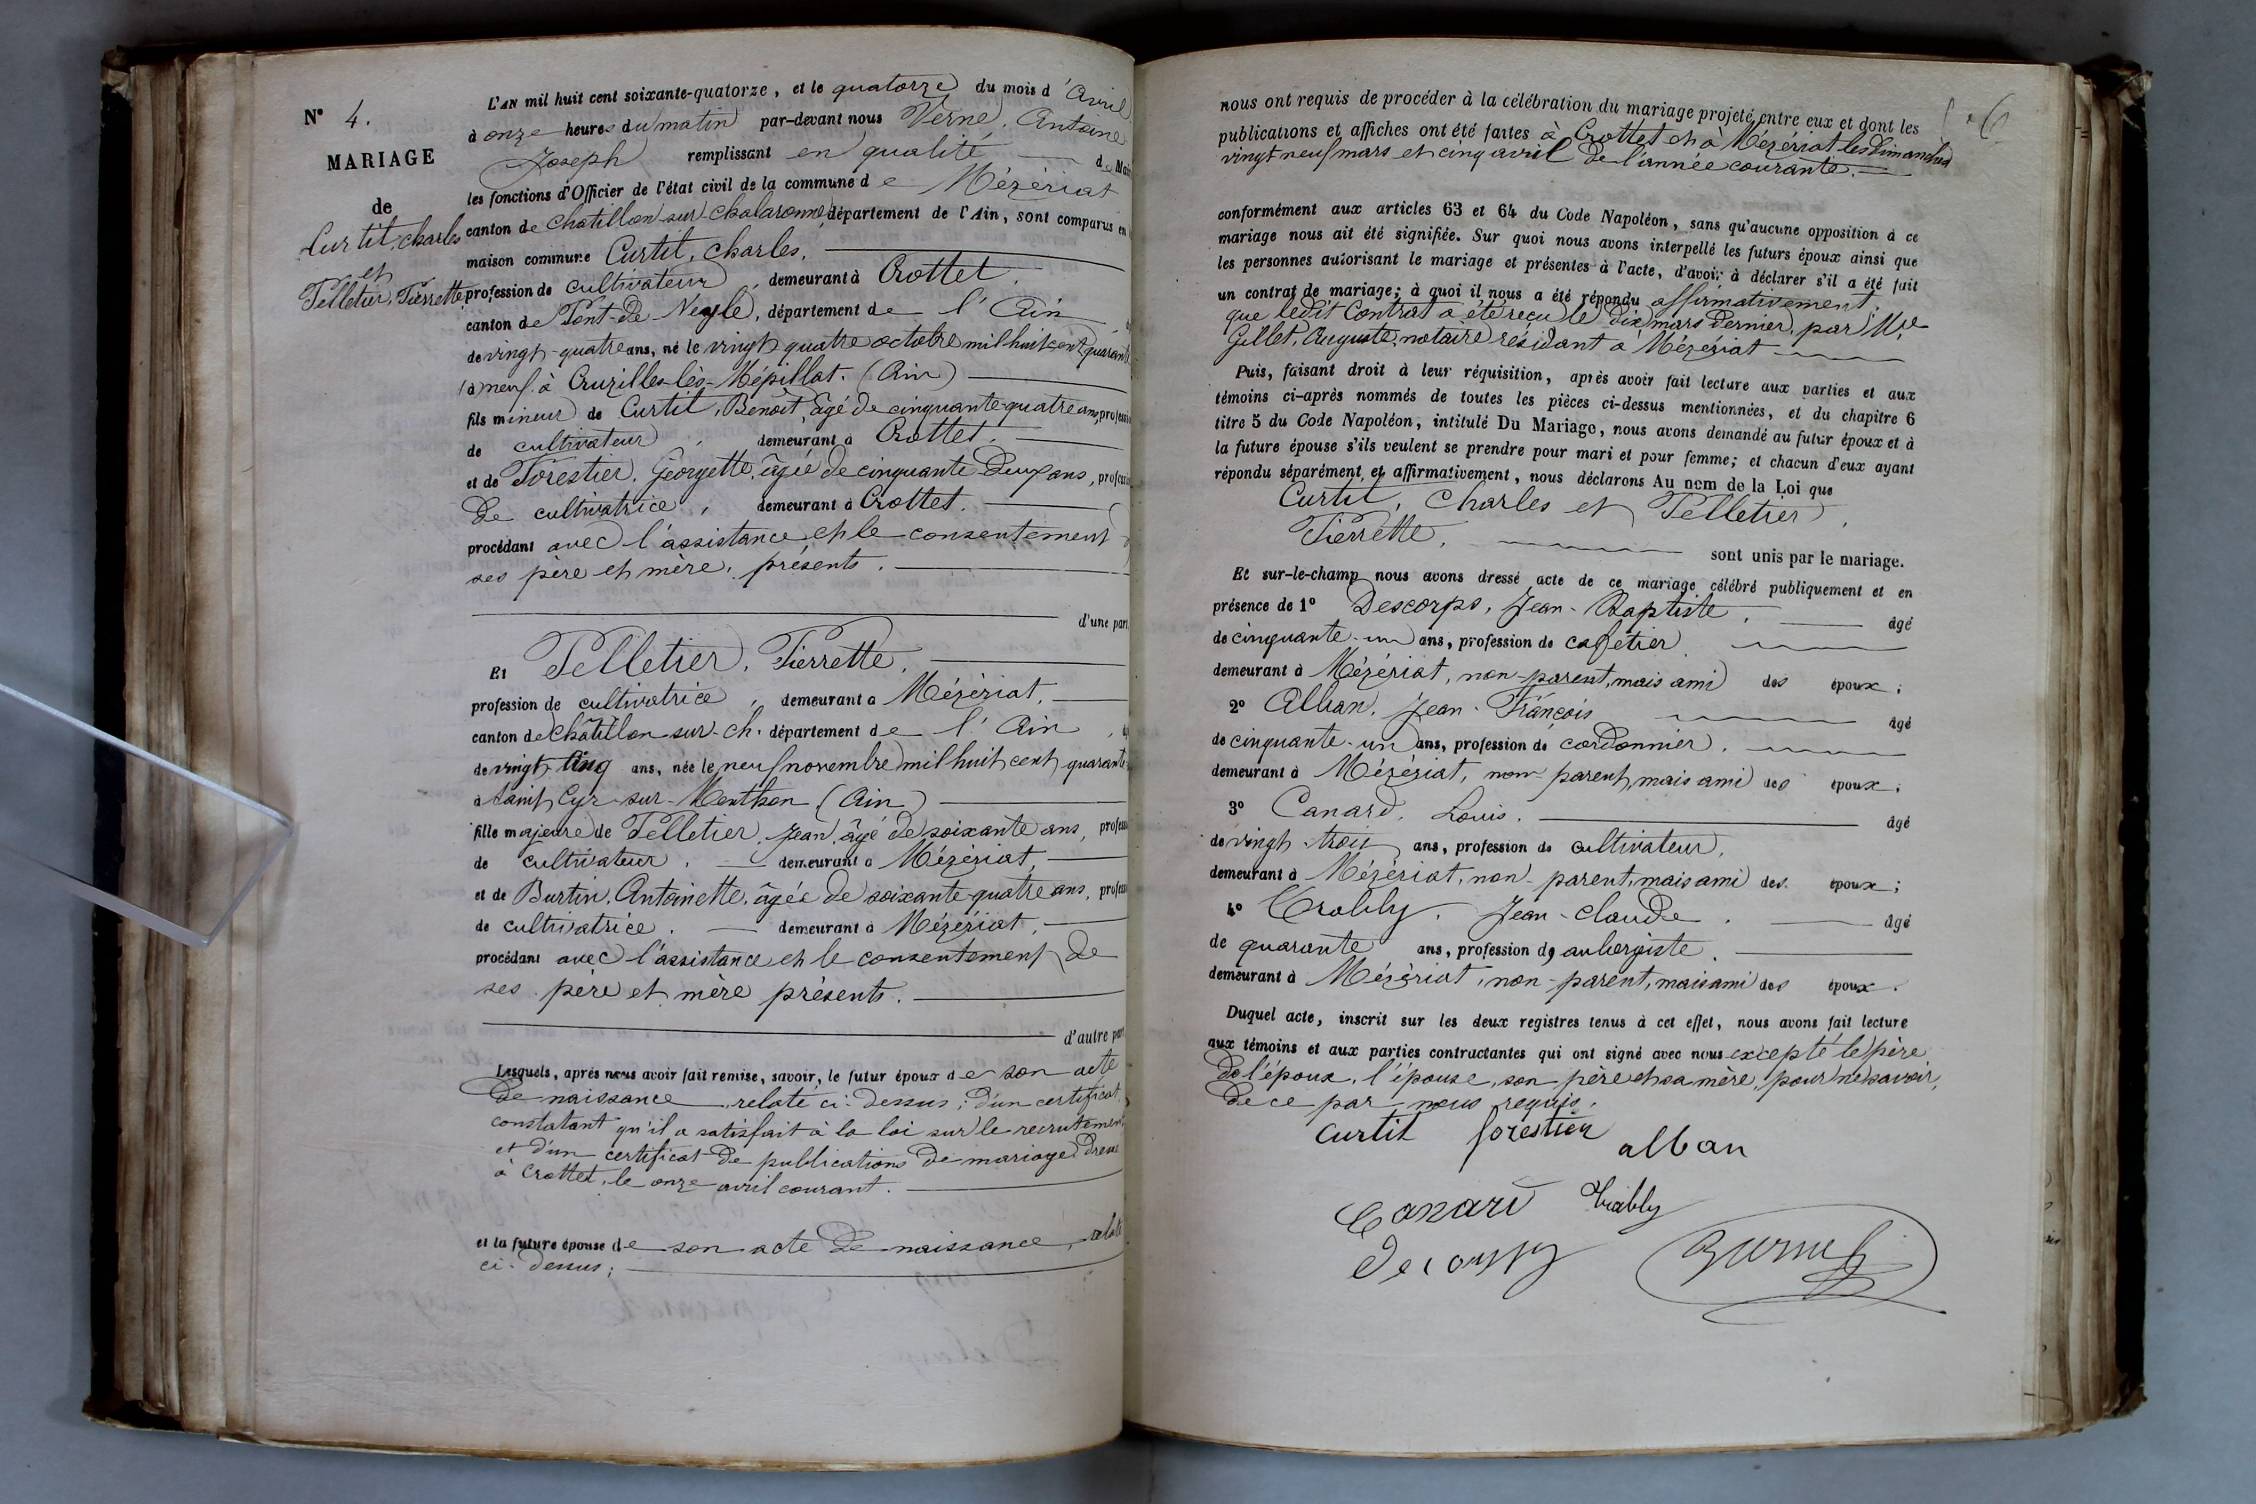 N° 4.
MARIAGE
de
Curtit, charles
et
Pelletier, Pierrette
L'AN mil huit cent soixante-quatorze, et le quatorze du mois d'Avril
à onze heures du matin par-devant nous Verne, Antoine
Joseph remplissant en qualité de Maire
les fonctions d'Officier de l'état civil de la commune de Mézériat
canton de Chatillon-sur-Chalaronne, département de l'Ain, sont comparus en
maison commune Curtit, charles,
profession de cultivateur, demeurant à Crottet,
canton de Pont-de-Veyle, département de l'Ain
de vingt-quatre ans, né le vingt quatre octobre mil huit cent quarante
neuf à Cruzilles-lès-Mépillat. (Ain)
fils mineur de Curtit, Benoît, âgé de cinquante-quatre ans, profession
de cultivateur, demeurant à Crottet.
et de Forestier, Georgette, âgée de cinquante deux ans, profession
de cultivatrice, demeurant à Crottet.
procédant avec l'assistance et le consentement
ses père et mère, présents.
d'une part.
Et Pelletier, Pierrette,
profession de cultivatrice, demeurant à Mézériat,
canton de Châtillon-sur-Ch. département de l'Ain,
de vingt cinq ans, née le neuf novembre mil huit cent quarante
à Saint Cyr-sur-Menthon (Ain)
fille majeure de Pelletier, Jean, âgé de soixante ans, profess
de cultivateur. demeurant à Mézériat,
et de Burtin, Antoinette, âgée de soixante-quatre ans, profess
de cultivatrice. demeurant à Mézériat,
procédant avec l'assistance et le consentement de
ses père et mère présents.
d'autre part
Lesquels, après nous avoir fait remise, savoir, le futur époux de son acte
de naissance relaté ci-dessus; d'un certificat
constatant qu'il a satisfait à la loi sur le recrutement
et d'un certificat de publications de mariage
à Crottet, le onze avril courant.
et la future épouse de son acte de naissance, relaté
ci-dessus;
nous ont requis de procéder à la célébration du mariage projeté entre eux et dont les
publications et affiches ont été faites à Crottet et à Mézériat les dimanches
vingt neuf mars et cinq avril de l'année courante.
conformément aux articles 63 et 64 du Code Napoléon, sans qu'aucune opposition à ce
mariage nous ait été signifiée. Sur quoi nous avons interpellé les futurs époux ainsi que
les personnes autorisant le mariage et présentes à l'acte, d'avoir à déclarer s'il a été fait
un contrat de mariage; à quoi il nous a été répondu affirmativement,
que ledit Contrat a été reçu le dix mars dernier, par Me
Gillet, Auguste, notaire résidant à Mézériat
Puis, faisant droit à leur réquisition, après avoir fait lecture aux parties et aux
témoins ci-après nommés de toutes les pièces ci-dessus mentionnées, et du chapitre 6
titre 5 du Code Napoléon, intitulé Du Mariage, nous avons demandé au futur époux et à
la future épouse s'ils veulent se prendre pour mari et pour femme; et chacun d'eux ayant
répondu séparément et affirmativement, nous déclarons Au nom de la Loi que
Curtit, Charles et Pelletier,
Pierrette, sont unis par le mariage.
Et sur-le-champ nous avons dressé acte de ce mariage célébré publiquement et en
présence de 1° Descorps, Jean-Baptiste, âgé
de cinquante-un ans, profession de cafetier.
demeurant à Mézériat, non-parent, mais ami des époux;
2° Alban, Jean-François âgé
de cinquante-un ans, profession de cordonnier.
demeurant à Mézériat, non-parent, mais ami des époux;
3° Canard, Louis. âgé
de vingt-trois ans, profession de cultivateur,
demeurant à Mézériat, non-parent, mais ami des époux;
4° Trably, Jean-Claude. âgé
de quarante ans, profession de aubergiste.
demeurant à Mézériat, non-parent, mais ami des époux.
Duquel acte, inscrit sur les deux registres tenus à cet effet, nous avons fait lecture
aux témoins et aux parties contractantes qui ont signé avec nous excepté le père
de l'époux, l'épouse, son père et sa mère, pour ne savoir,
de ce par nous requis.
Curtit forestier alban
Canard trably